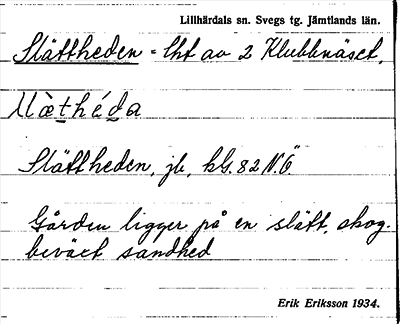 Lillhärdals sn. Svegs tg. Jämtlands län.
Slättheden = lht av 2 Klubbnäset,
Slättheden, jb, kG. 82 N.Ö.
Gården ligger på en slätt, skog-
beväxt sandhed
Erik Eriksson 1934.